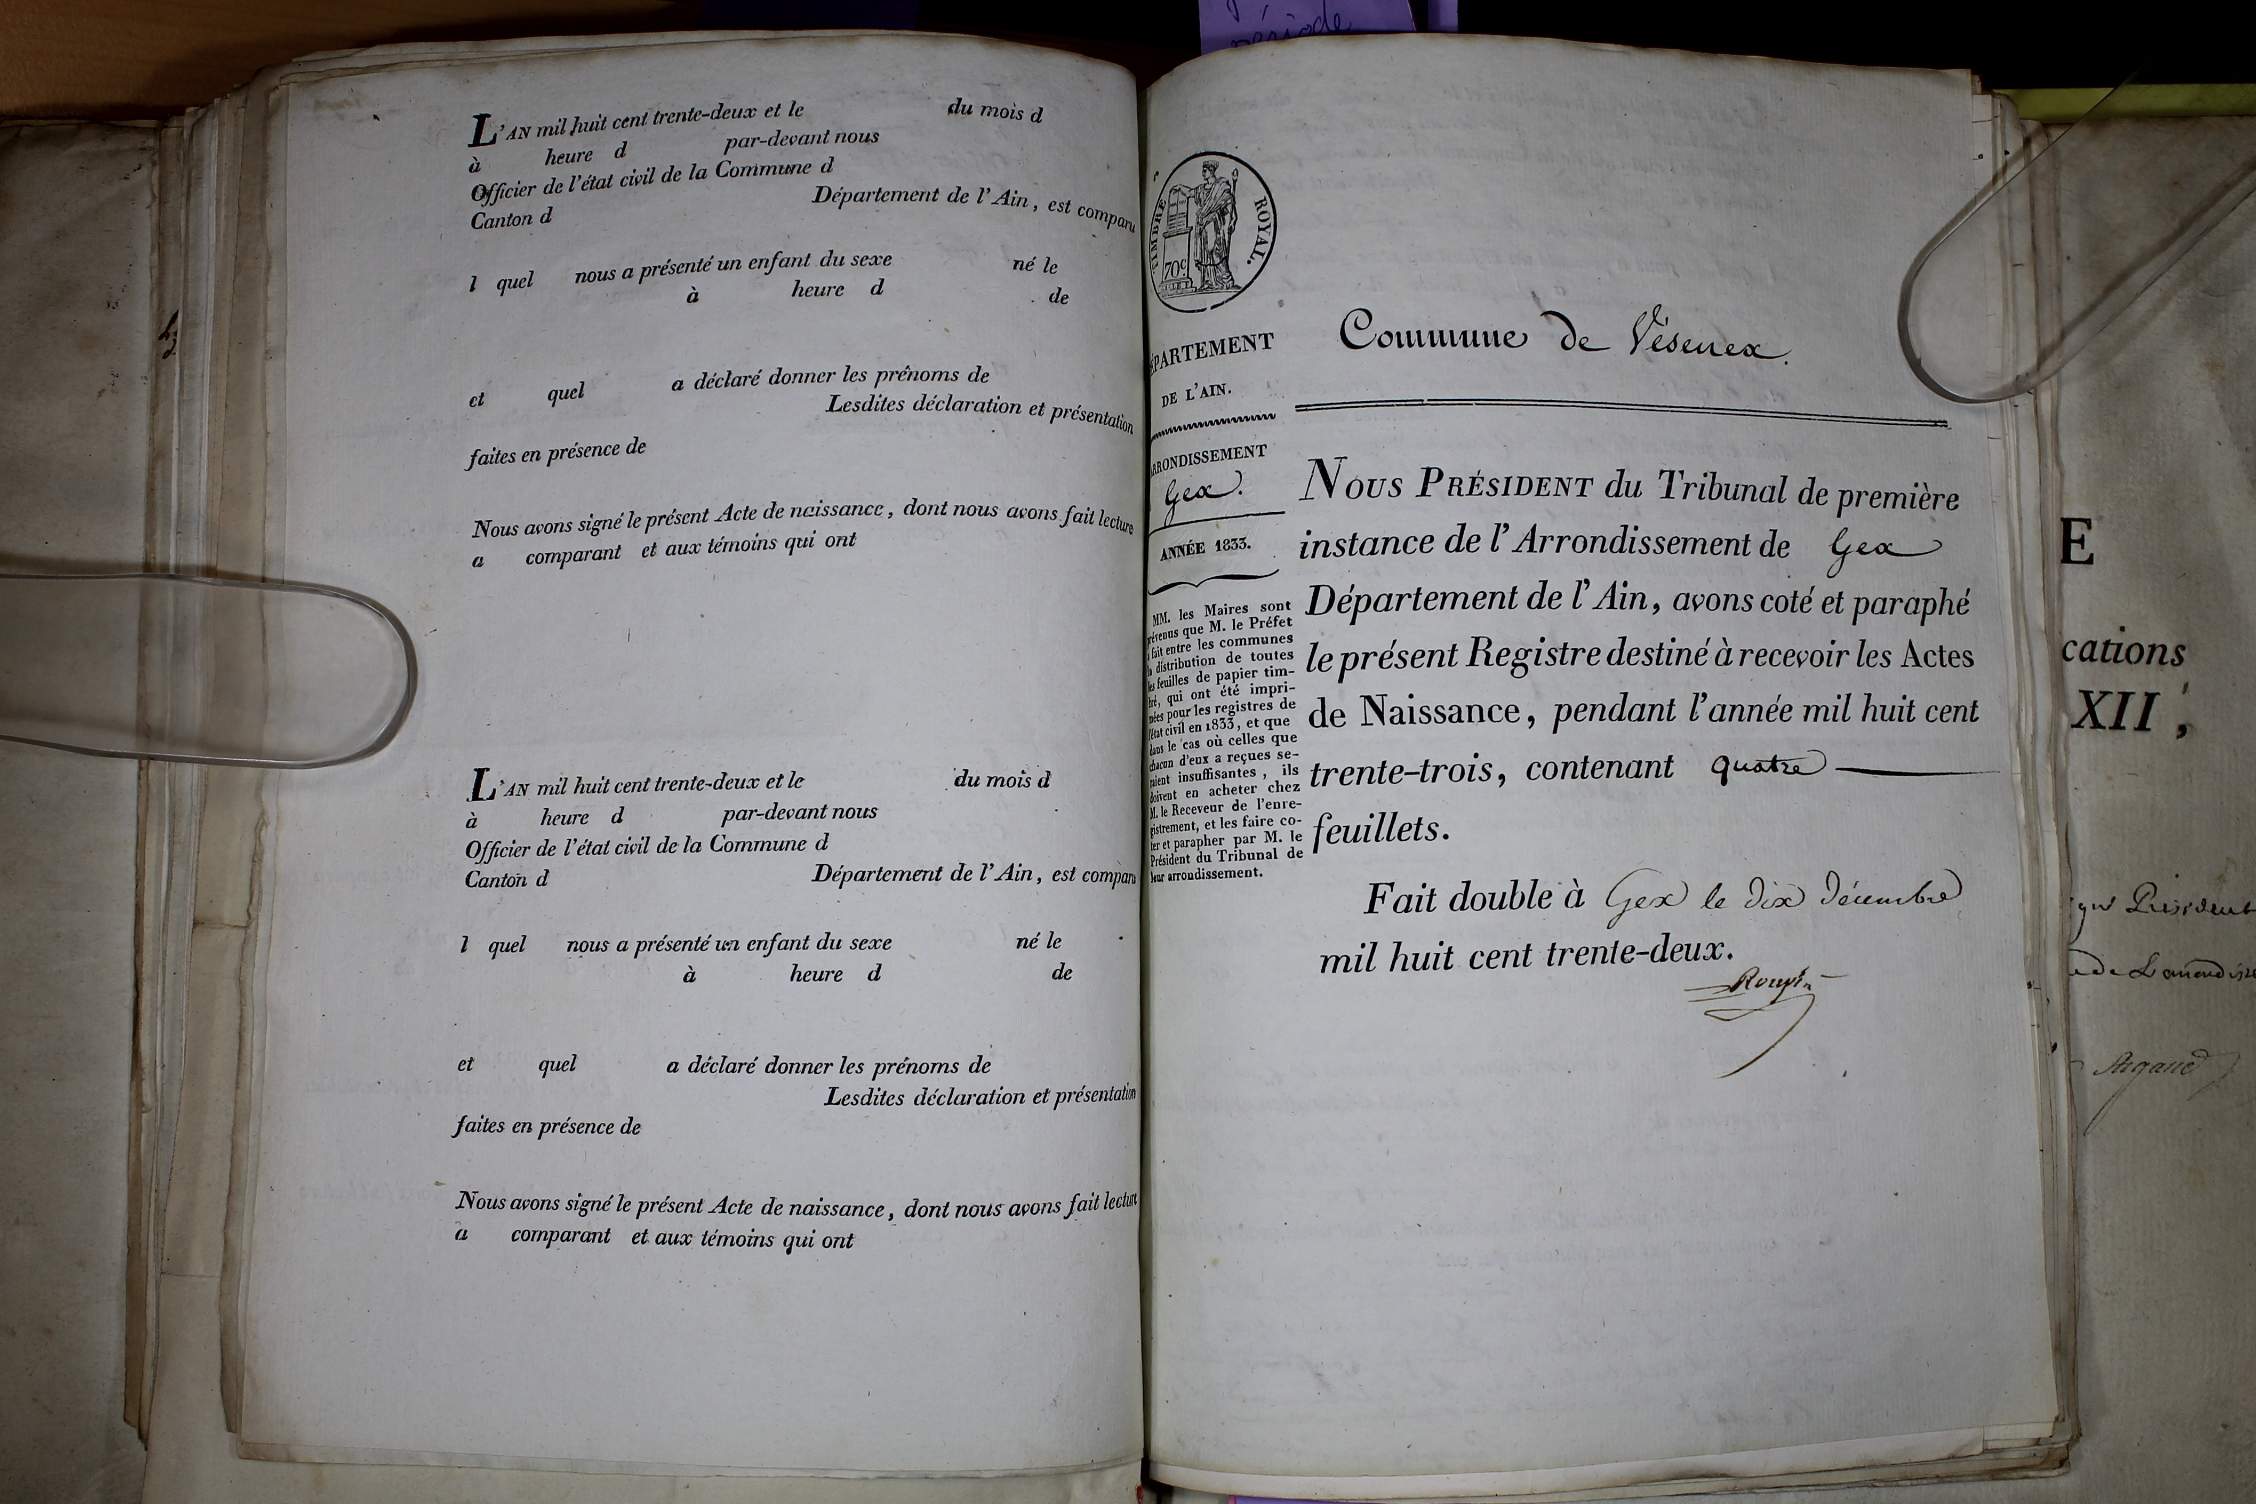 L'AN mil huit cent trente-deux et le du mois d
à heure d par-devant nous
Officier de l'état civil de la Commune d
Canton d Département de l'Ain, est comparu
l quel nous a présenté un enfant du sexe né le
à heure d de
et quel a déclaré donner les prénoms de
Lesdites déclaration et présentation
faites en présence de
Nous avons signé le présent Acte de naissance, dont nous avons fait lecture
a comparant et aux témoins qui ont
L'AN mil huit cent trente-deux et le du mois d
à heure d par-devant nous
Officier de l'état civil de la Commune d
Canton d Département de l'Ain, est comparu
l quel nous a présenté un enfant du sexe né le
à heure d de
et quel a déclaré donner les prénoms de
Lesdites déclaration et présentation
faites en présence de
Nous avons signé le présent Acte de naissance, dont nous avons fait lecture
a comparant et aux témoins qui ont
période
TIMBRE ROYAL.
70c.
ÉPARTEMENT
DE L'AIN.
RRONDISSEMENT
Gex.
ANNÉE 1833.
MM. les Maires sont
révenus que M. le Préfet
a fait entre les communes
la distribution de toutes
les feuilles de papier tim-
bré, qui ont été impri-
mées pour les registres de
l'état civil en 1833, et que
dans le cas où celles que
chacun d'eux a reçues se-
raient insuffisantes, ils
doivent en acheter chez
M. le Receveur de l'enre-
gistrement, et les faire co-
ter et parapher par M. le
Président du Tribunal de
leur arrondissement.
Commune de Vésenex.
NOUS PRÉSIDENT du Tribunal de première
instance de l'Arrondissement de Gex
Département de l'Ain, avons coté et paraphé
le présent Registre destiné à recevoir les Actes
de Naissance, pendant l'année mil huit cent
trente-trois, contenant quatre
feuillets.
Fait double à Gex le dix décembre
mil huit cent trente-deux.
E
cations
XII,
Président